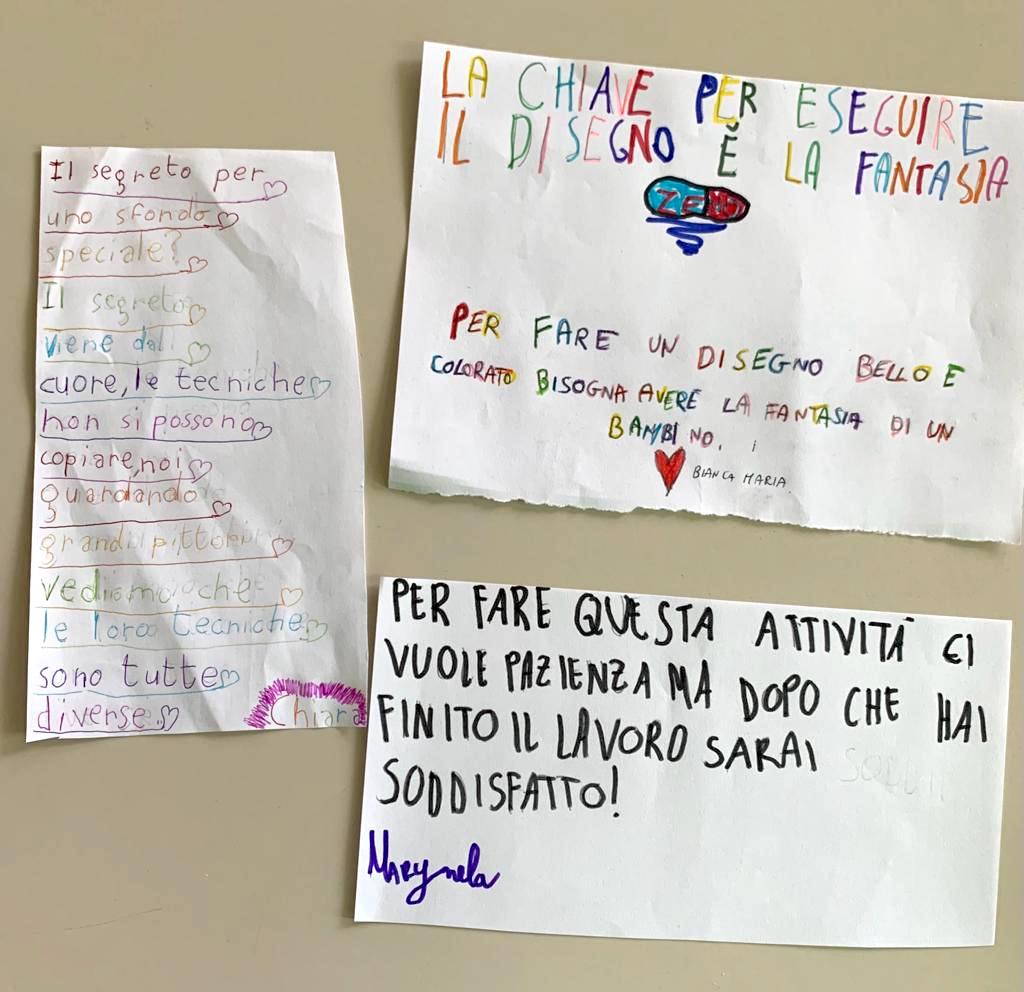 Il segreto per
uno sfondo
speciale?
Il segreto
viene dal
cuore, le tecniche
non si possono
copiare, noi
guardando
grandi pittori
vediamo che
le loro tecniche
sono tutte
diverse.
Chiara
LA CHIAVE PER ESEGUIRE
IL DISEGNO È LA FANTASIA
ZENO
PER FARE UN DISEGNO BELLO E
COLORATO BISOGNA AVERE LA FANTASIA DI UN
BAMBINO.
BIANCA MARIA
PER FARE QUESTA ATTIVITÁ CI
VUOLE PAZIENZA MA DOPO CHE HAI
FINITO IL LAVORO SARAI
SODDISFATTO!
Marynela